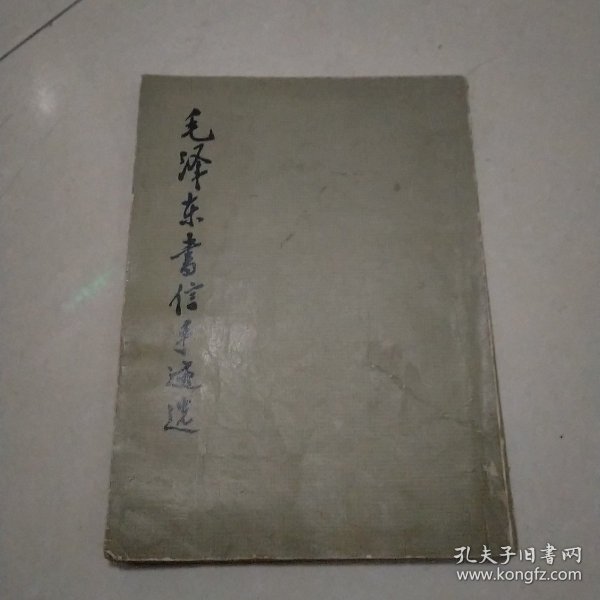 毛泽东书信手迹选
孔夫子旧書网
www.kongfz.com